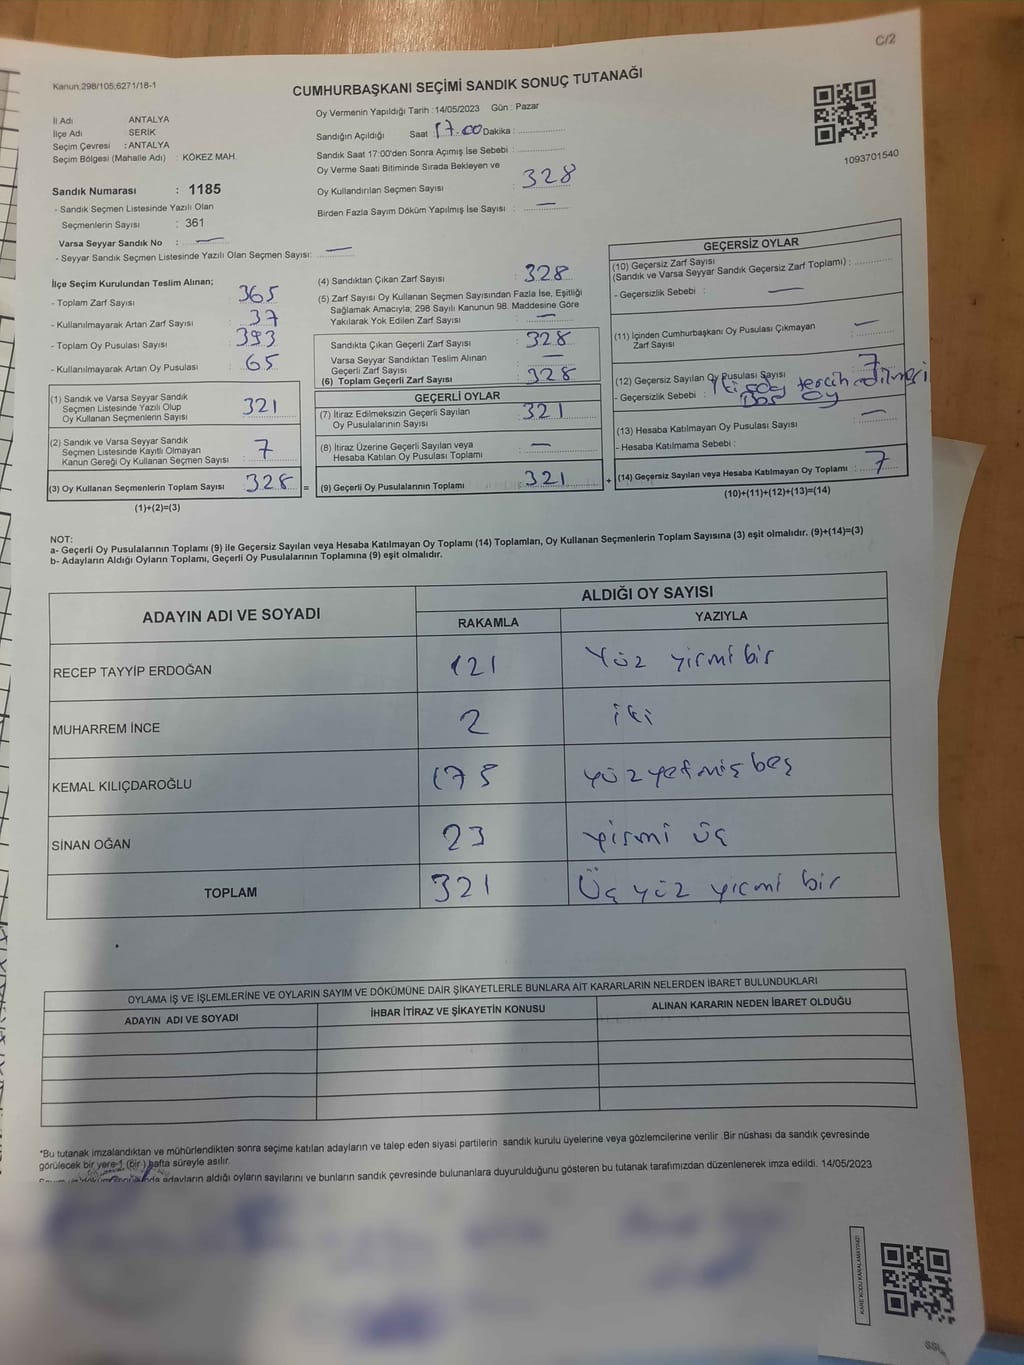 C/2
Kanun:298/105;6271/18-1
CUMHURBAŞKANI SEÇİMİ SANDIK SONUÇ TUTANAĞI
İl Adı ANTALYA
İlçe Adı SERİK
Seçim Çevresi : ANTALYA
Seçim Bölgesi (Mahalle Adı) : KÖKEZ MAH.
Sandık Numarası : 1185
- Sandık Seçmen Listesinde Yazılı Olan
Seçmenlerin Sayısı : 361
Varsa Seyyar Sandık No : —
- Seyyar Sandık Seçmen Listesinde Yazılı Olan Seçmen Sayısı: —
Oy Vermenin Yapıldığı Tarih : 14/05/2023 Gün : Pazar
Sandığın Açıldığı Saat : 17.00 Dakika :
Sandık Saat 17:00'den Sonra Açımış İse Sebebi :
Oy Verme Saati Bitiminde Sırada Bekleyen ve
Oy Kullandırılan Seçmen Sayısı : 328
Birden Fazla Sayım Döküm Yapılmış İse Sayısı : —
1093701540
İlçe Seçim Kurulundan Teslim Alınan;
- Toplam Zarf Sayısı : 365
- Kullanılmayarak Artan Zarf Sayısı : 37
- Toplam Oy Pusulası Sayısı : 393
- Kullanılmayarak Artan Oy Pusulası : 65
(1) Sandık ve Varsa Seyyar Sandık
Seçmen Listesinde Yazılı Olup
Oy Kullanan Seçmenlerin Sayısı : 321
(2) Sandık ve Varsa Seyyar Sandık
Seçmen Listesinde Kayıtlı Olmayan
Kanun Gereği Oy Kullanan Seçmen Sayısı : 7
(3) Oy Kullanan Seçmenlerin Toplam Sayısı : 328 =
(1)+(2)=(3)
(4) Sandıktan Çıkan Zarf Sayısı : 328
(5) Zarf Sayısı Oy Kullanan Seçmen Sayısından Fazla İse, Eşitliği
Sağlamak Amacıyla; 298 Sayılı Kanunun 98. Maddesine Göre
Yakılarak Yok Edilen Zarf Sayısı : —
Sandıkta Çıkan Geçerli Zarf Sayısı : 328
Varsa Seyyar Sandıktan Teslim Alınan
Geçerli Zarf Sayısı : —
(6) Toplam Geçerli Zarf Sayısı : 328
GEÇERLİ OYLAR
(7) İtiraz Edilmeksizin Geçerli Sayılan
Oy Pusulasının Sayısı : 321
(8) İtiraz Üzerine Geçerli Sayılan veya
Hesaba Katılan Oy Pusulası Toplamı : —
(9) Geçerli Oy Pusulalarının Toplamı : 321 +
GEÇERSİZ OYLAR
(10) Geçersiz Zarf Sayısı
(Sandık ve Varsa Seyyar Sandık Geçersiz Zarf Toplamı) :
- Geçersizlik Sebebi : —
(11) İçinden Cumhurbaşkanı Oy Pusulası Çıkmayan
Zarf Sayısı : —
(12) Geçersiz Sayılan Oy Pusulası Sayısı : 7
- Geçersizlik Sebebi : tercih edilmesi
Boş oy
(13) Hesaba Katılmayan Oy Pusulası Sayısı : —
- Hesaba Katılmama Sebebi :
(14) Geçersiz Sayılan veya Hesaba Katılmayan Oy Toplamı : 7
(10)+(11)+(12)+(13)=(14)
NOT:
a- Geçerli Oy Pusulalarının Toplamı (9) ile Geçersiz Sayılan veya Hesaba Katılmayan Oy Toplamı (14) Toplamları, Oy Kullanan Seçmenlerin Toplam Sayısına (3) eşit olmalıdır. (9)+(14)=(3)
b- Adayların Aldığı Oyların Toplamı, Geçerli Oy Pusulalarının Toplamına (9) eşit olmalıdır.
ADAYIN ADI VE SOYADI ALDIĞI OY SAYISI
RAKAMLA YAZIYLA
RECEP TAYYİP ERDOĞAN 121 Yüz yirmi bir
MUHARREM İNCE 2 iki
KEMAL KILIÇDAROĞLU 175 yüz yetmiş beş
SİNAN OĞAN 23 yirmi üç
TOPLAM 321 Üç yüz yirmi bir
OYLAMA İŞ VE İŞLEMLERİNE VE OYLARIN SAYIM VE DÖKÜMÜNE DAİR ŞİKAYETLERLE BUNLARA AİT KARARLARIN NELERDEN İBARET BULUNDUKLARI
ADAYIN ADI VE SOYADI İHBAR İTİRAZ VE ŞİKAYETİN KONUSU ALINAN KARARIN NEDEN İBARET OLDUĞU
*Bu tutanak imzalandıktan ve mühürlendikten sonra seçime katılan adayların ve talep eden siyasi partilerin sandık kurulu üyelerine veya gözlemcilerine verilir .Bir nüshası da sandık çevresinde
görülecek bir yere 1 (Bir ) hafta süreyle asılır.
adayların aldığı oyların sayılarını ve bunların sandık çevresinde bulunanlara duyurulduğunu gösteren bu tutanak tarafımızdan düzenlenerek imza edildi. 14/05/2023
KARE KODU KARALAMAYINIZ!